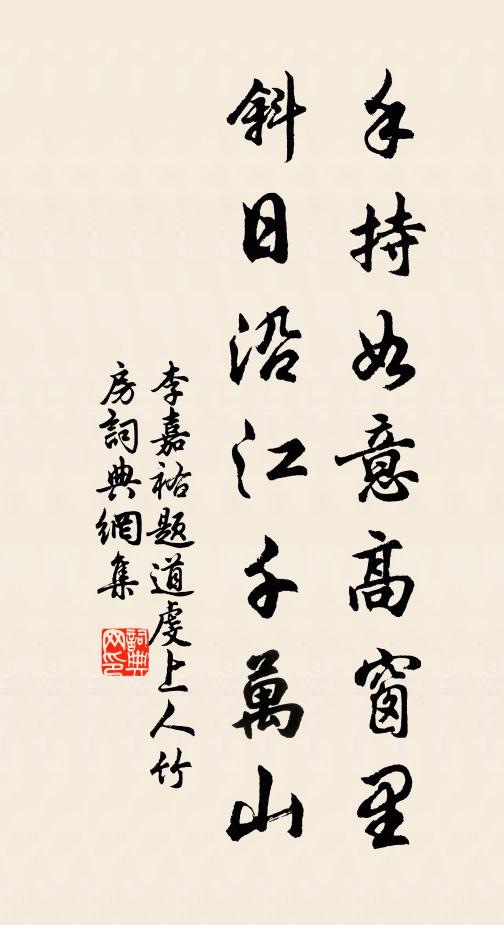 手持如意高窗里
斜日沿江千萬山
李嘉祐题道虔上人竹
房詞典網集
詞典网印